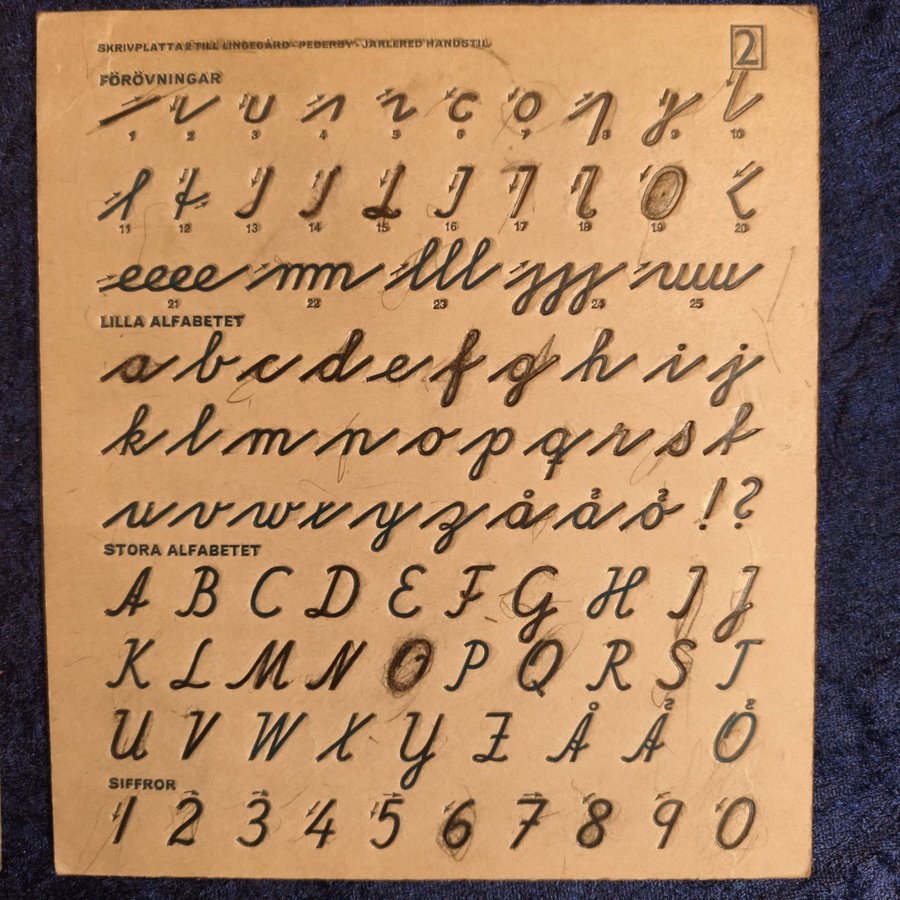 SKRIVPLATTA 2 TILL LINGEGÅRD - PEDERBY - JARLERED HANDSTIL
2
FÖRÖVNINGAR
1 2 3 4 5 6 7 8 9 10
11 12 13 14 15 16 17 18 19 20
eeee mm lll jjj uuu
21 22 23 24 25
LILLA ALFABETET
a b c d e f g h i j
k l m n o p q r s t
u v w x y z å ä ö ! ?
STORA ALFABETET
A B C D E F G H I J
K L M N O P Q R S T
U V W X Y Z Å Ä Ö
SIFFROR
1 2 3 4 5 6 7 8 9 0